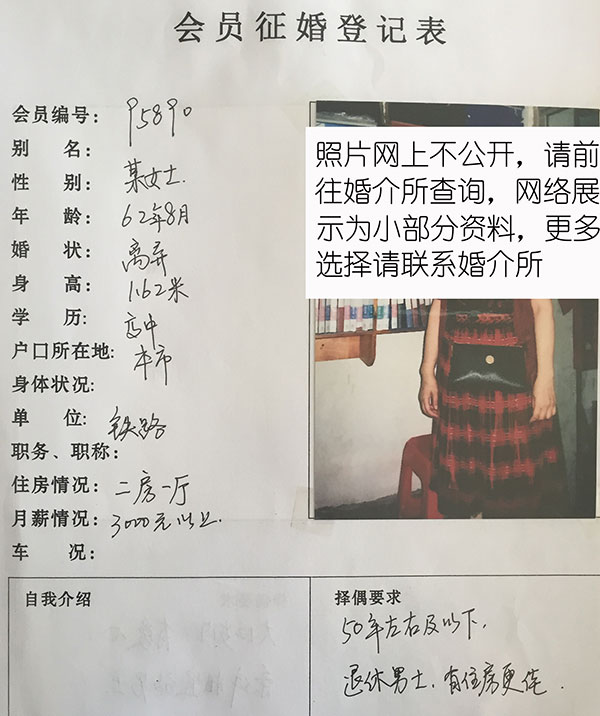 会员征婚登记表
会员编号: 95890
别 名:
性 别: 某女士.
年 龄: 62年8月
婚 状: 离异
身 高: 1.62米
学 历: 高中
户口所在地: 本市
身体状况:
单 位: 铁路
职务、职称:
住房情况: 二房一厅
月薪情况: 3000元以上.
车 况:
照片网上不公开，请前
往婚介所查询，网络展
示为小部分资料，更多
选择请联系婚介所
自我介绍
择偶要求
50年左右及以下.
退休男士.有住房更佳.